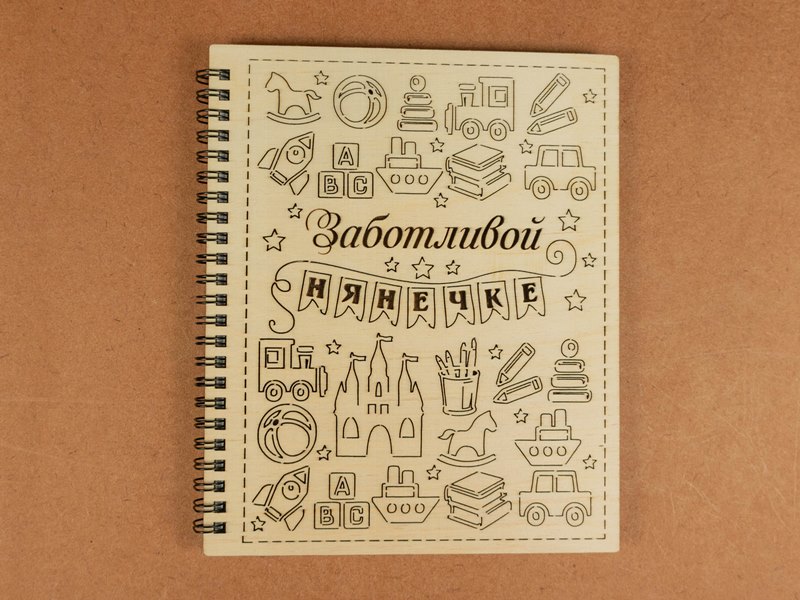 A
B C
Заботливой
НЯНЕЧКЕ
A
B C